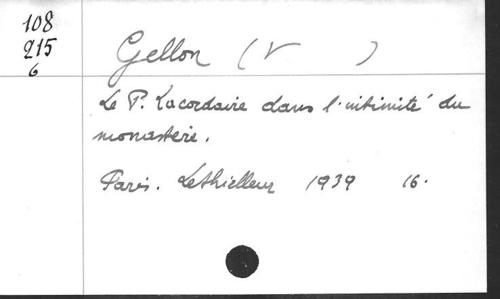 108
215
6
Gellon (V )
Le P. Lacordaire dans l'intimité du
monastère.
Paris. Lethielleux 1939 16.